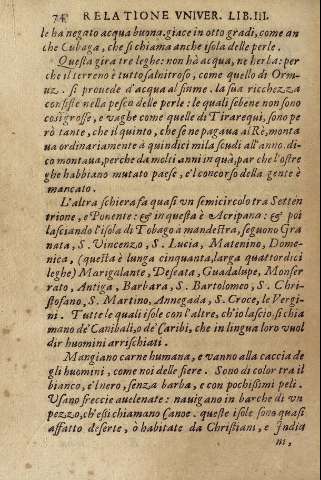 74 RELATIONE VNIVER. LIB. III.
le ha negato acqua buona. giace in otto gradi, come an
che Cubaga, che si chiama anche isola delle perle.
Questa gira tre leghe: non hà acqua, ne herba: per
che il terreno è tutto salnitroso, come quello di Ormuz
uz. si prouede d'acqua al fiume. la sua ricchezza
consiste nella pesca delle perle: le quali sebene non sono
così grosse, e vaghe come quelle di Tirarequi, sono pe
rò tante, che il quinto, che se ne pagaua al Rè, monta
ua ordinariamente à quindici mila scudi all'anno. di
co montaua, perche da molti anni in quà, par che l'ostre
ghe habbiano mutato paese, e'l concorso della gente è
mancato.
L'altra schiera fa quasi vn semicircolo tra Setten
trione, e Ponente: & in questa è Acripana: & poi
lasciando l'isola di Tobago à mandestra, seguono Gra
nata, S. Vincenzo, S. Lucia, Matenino, Dome-
nica, (questa è lunga cinquanta, larga quattordici
leghe) Marigalante, Deseata, Guadalupe, Monser
rato, Antiga, Barbara, S. Bartolomeo, S. Chri-
stofano, S. Martino, Annegada, S. Croce, le Vergi
ni. Tutte le quali isole con l'altre, ch'io lascio, si chia
mano de' Canibali, o de' Caribi, che in lingua loro vuol
dir huomini arrischiati.
Mangiano carne humana, e vanno alla caccia de
gli huomini, come noi delle fiere. Sono di color tra il
bianco, e'l nero, senza barba, e con pochissimi peli.
Vsano freccie auelenate: nauigano in barche di vn
pezzo, ch'essi chiamano Canoe. queste isole sono quasi
affatto deserte, ò habitate da Christiani, e India
ni,